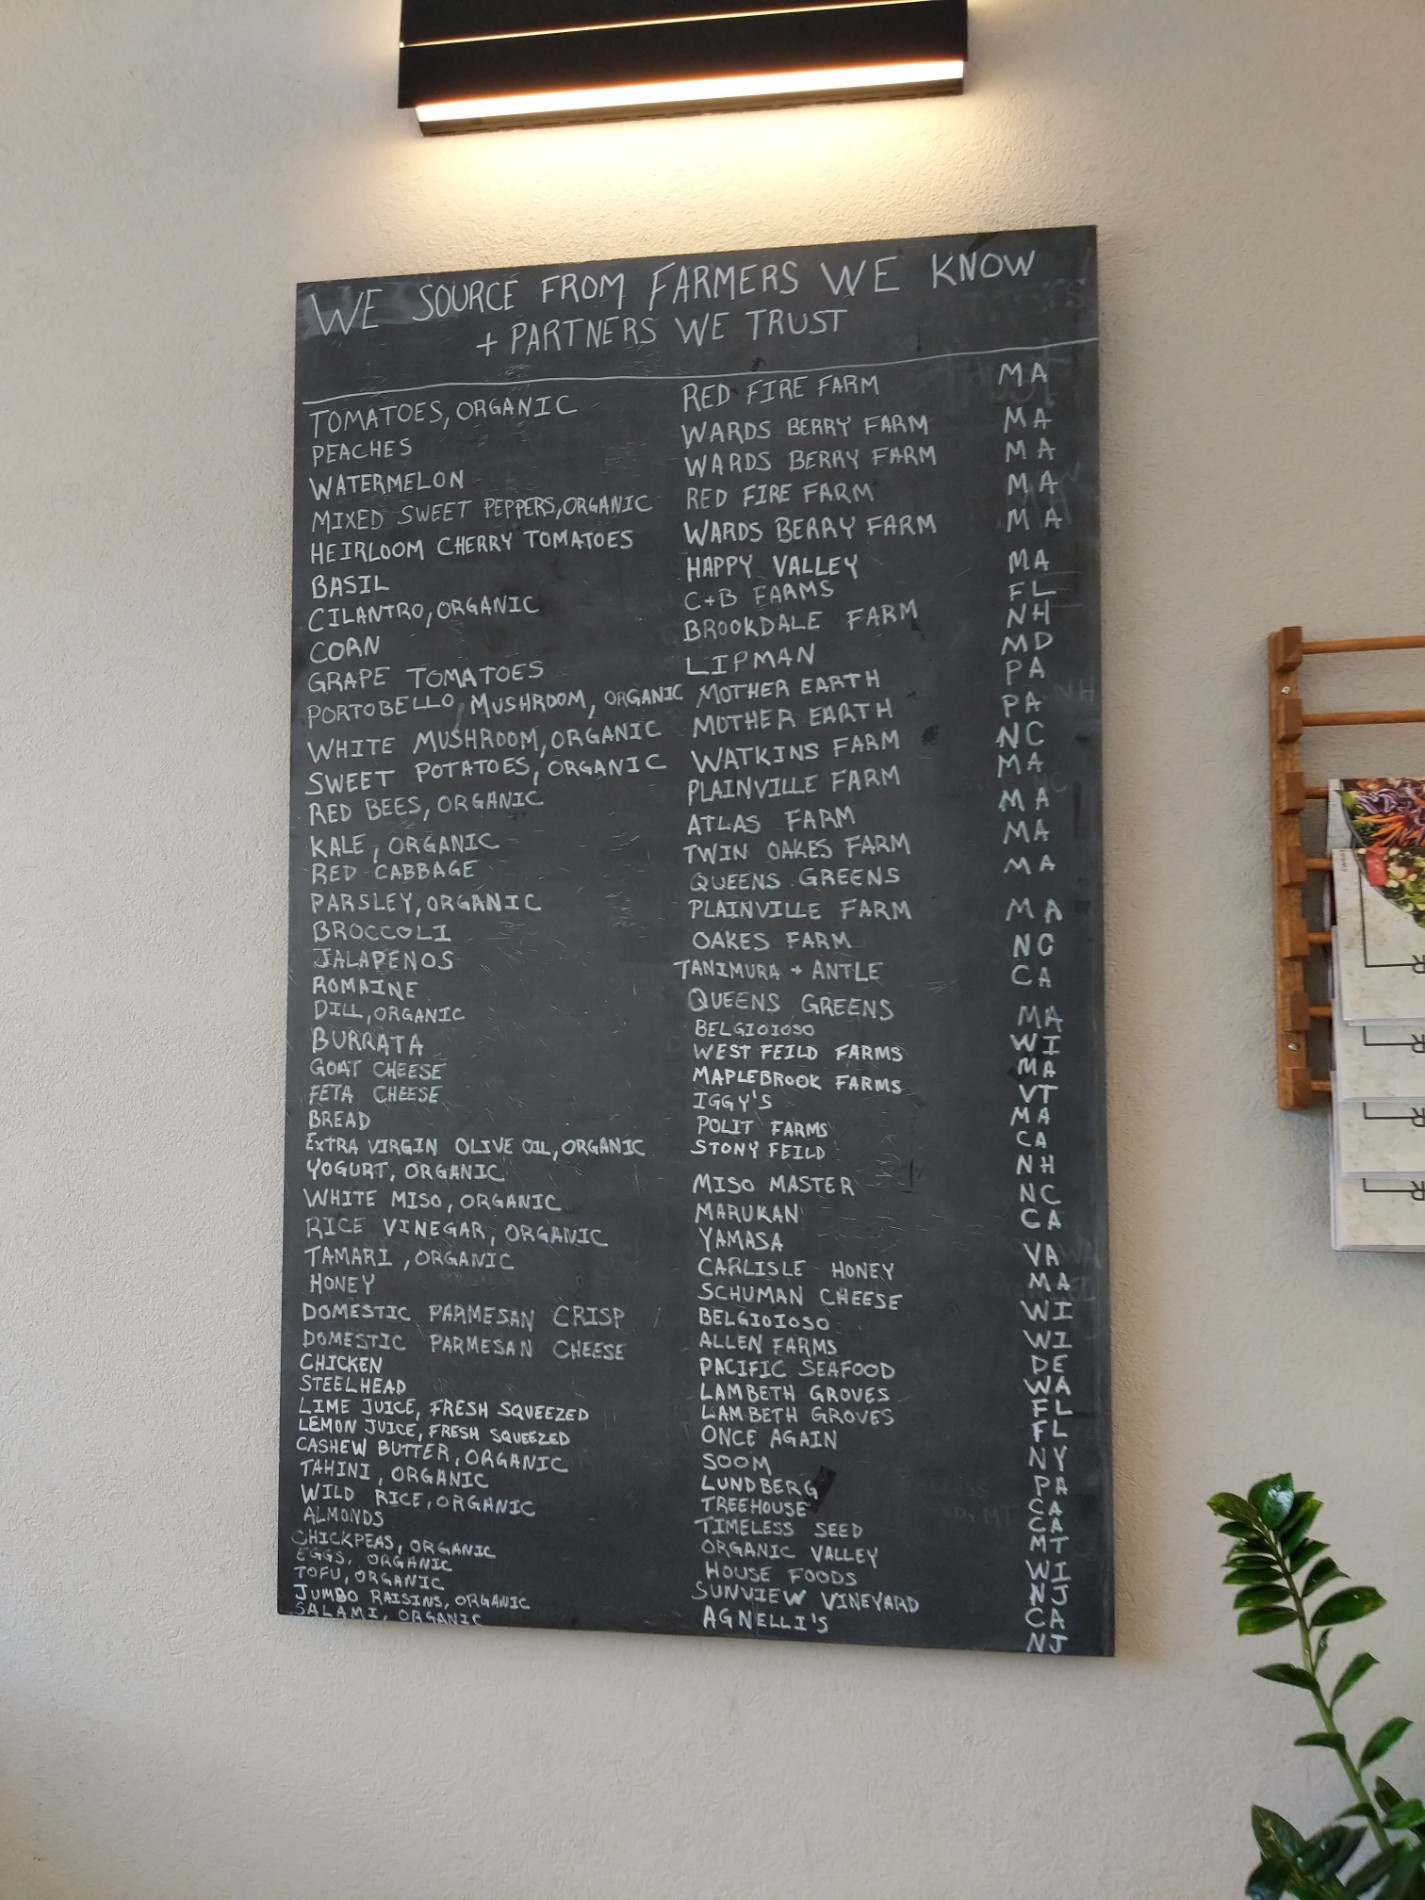 WE SOURCE FROM FARMERS WE KNOW
+ PARTNERS WE TRUST
TOMATOES, ORGANIC RED FIRE FARM MA
PEACHES WARDS BERRY FARM MA
WATERMELON WARDS BERRY FARM MA
MIXED SWEET PEPPERS, ORGANIC RED FIRE FARM MA
HEIRLOOM CHERRY TOMATOES WARDS BERRY FARM MA
BASIL HAPPY VALLEY MA
CILANTRO, ORGANIC C+B FARMS FL
CORN BROOKDALE FARM NH
GRAPE TOMATOES LIPMAN MD
PORTOBELLO, MUSHROOM, ORGANIC MOTHER EARTH PA
WHITE MUSHROOM, ORGANIC MOTHER EARTH PA
SWEET POTATOES, ORGANIC WATKINS FARM NC
RED BEES, ORGANIC PLAINVILLE FARM MA
KALE, ORGANIC ATLAS FARM MA
RED CABBAGE TWIN OAKES FARM MA
PARSLEY, ORGANIC QUEENS GREENS MA
BROCCOLI PLAINVILLE FARM MA
JALAPENOS OAKES FARM NC
ROMAINE TANIMURA + ANTLE CA
DILL, ORGANIC QUEENS GREENS MA
BURRATA BELGIOIOSO WI
GOAT CHEESE WEST FEILD FARMS MA
FETA CHEESE MAPLEBROOK FARMS VT
BREAD IGGY'S MA
EXTRA VIRGIN OLIVE OIL, ORGANIC POLIT FARMS CA
YOGURT, ORGANIC STONY FEILD NH
WHITE MISO, ORGANIC MISO MASTER NC
RICE VINEGAR, ORGANIC MARUKAN CA
TAMARI, ORGANIC YAMASA VA
HONEY CARLISLE HONEY MA
DOMESTIC PARMESAN CRISP SCHUMAN CHEESE WI
DOMESTIC PARMESAN CHEESE BELGIOIOSO WI
CHICKEN ALLEN FARMS DE
STEELHEAD PACIFIC SEAFOOD WA
LIME JUICE, FRESH SQUEEZED LAMBETH GROVES FL
LEMON JUICE, FRESH SQUEEZED LAMBETH GROVES FL
CASHEW BUTTER, ORGANIC ONCE AGAIN NY
TAHINI, ORGANIC SOOM PA
WILD RICE, ORGANIC LUNDBERG CA
ALMONDS TREEHOUSE CA
CHICKPEAS, ORGANIC TIMELESS SEED MT
EGGS, ORGANIC ORGANIC VALLEY WI
TOFU, ORGANIC HOUSE FOODS NJ
JUMBO RAISINS, ORGANIC SUNVIEW VINEYARD CA
SALAMI, ORGANIC AGNELLI'S NJ